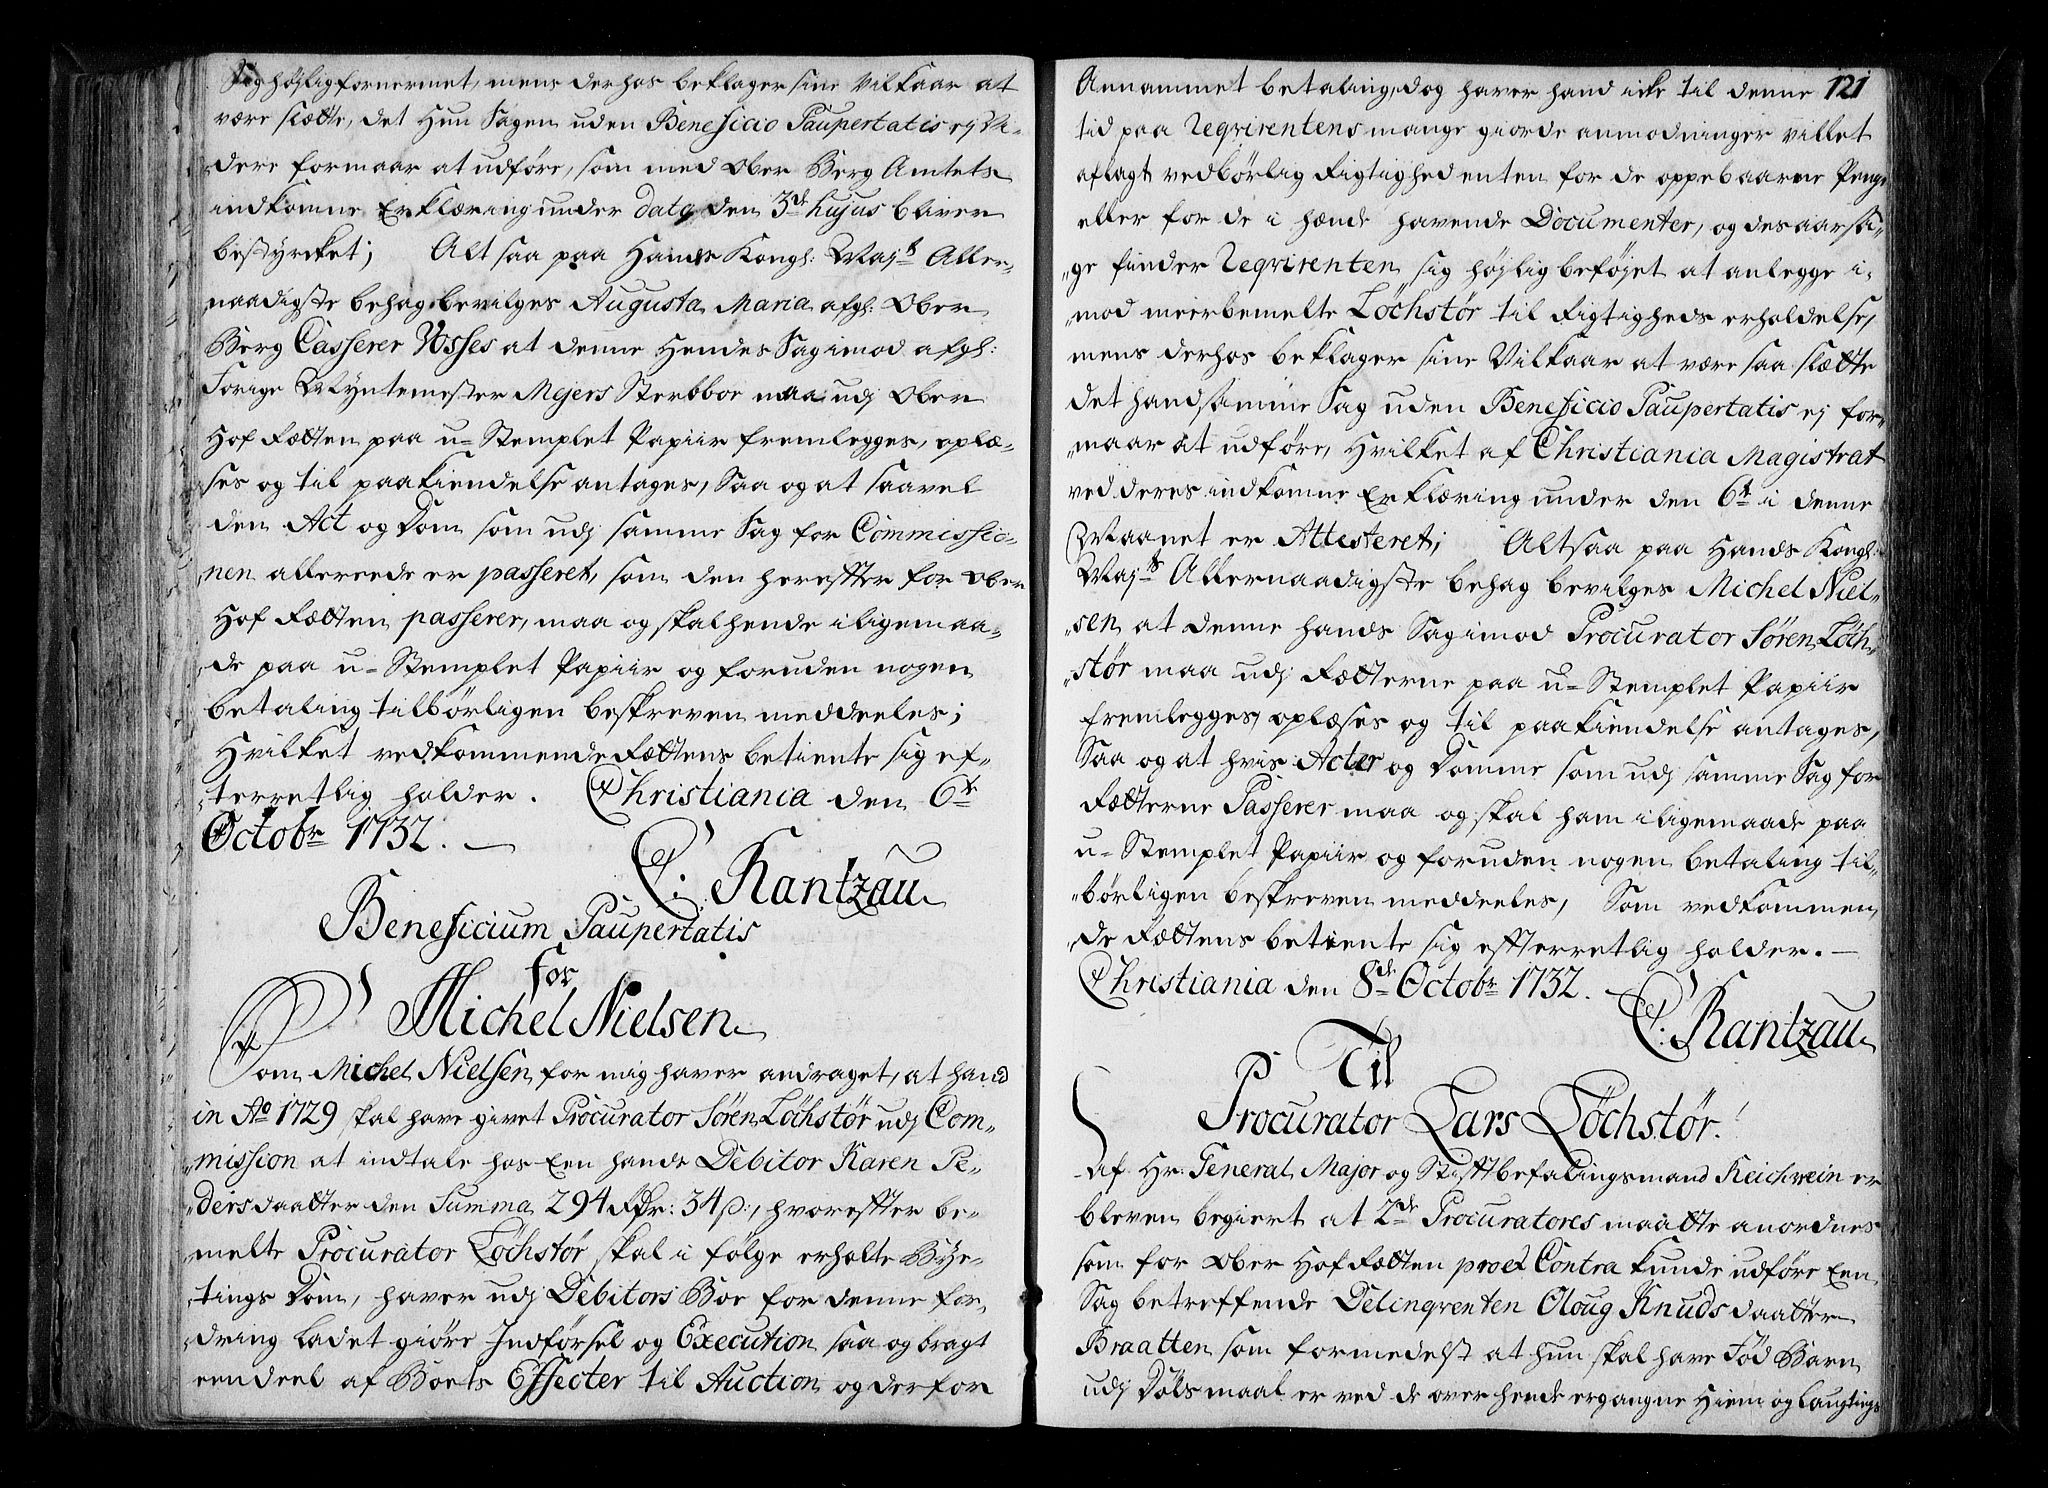 Sig højlig fornermet, mens derhos beklager sine Vilkaar at
være slætte, det Hun Sagen uden Beneficio Paupertatis ej vi-
dere formaar at udføre, som med Ober Berg Amtets
indkomne Erklæring under dato den 3de hujus bliver
bestyrcket; Alt saa paa Hands Kongl: Majts Aller-
naadigste behag bevilges Augusta Maria afgl: Ober
Berg Casserer Vosses at denne Hendes Sag imod afgl:
Forige Myntemester Mejers Sterbboe maa udj Ober
Hof Rætten paa u-Stemplet Papiir fremlegges, oplæ-
ses og til paakiendelse antages, Saa og at saavel
den Act og Dom som udj samme Sag for Commissio-
nen allereede er passeret, som den herefter for Ober
Hof Rætten passerer, maa og skal hende iligemaa-
de paa u-Stemplet Papiir og foruden nogen
betaling tilbørligen beskreven meddeeles;
Hvilket vedkommende Rættens betiente sig ef-
terretlig holder. Christiania den 6te
Octobr 1732.
C: Rantzau
Beneficium Paupertatis
for
Michel Nielsen
Som Michel Nielsen for mig haver andraget, at hand
in Ao 1729 skal have givet Procurator Søren Løchstør udj Com-
mission at indtale hos Een hands Debitor Karen Pe-
dersdaatter den Summa 294 Rdr: 34 s:, hvorefter be-
melte Procurator Løchstør skal i følge erholte Bye-
tings Dom, haver udj Debitors Boe for denne for-
dring ladet giøre Indførsel og Execution saa og bragt
eendeel af Boets Effecter til Auction og derfor
Annammet betaling, dog haver hand icke til denne 121
tid paa Reqvirentens mange giorde anmodninger villet
aflagt vedbørlig Rigtighed enten for de oppebaarne Penge
eller for de i hænde havende Documenter, og desaarsa-
ge finder Reqvirenten sig højlig beføjet at anlegge i-
mod meerbemelte Løchstør til Rigtigheds erholdelse,
mens derhos beklager sine Vilkaar at være saa slætte
det hand samme Sag uden Beneficio Paupertatis ej for-
maar at udføre, Hvilket af Christiania Magistrat
ved deres indkomne Erklæring under den 6te i denne
Maanet er Attesteret; Altsaa paa Hands Kongl:
Majts Allernaadigste behag bevilges Michel Niel-
sen at denne hands Sag imod Procurator Søren Løch-
stør maa udj Rætterne paa u-Stemplet Papiir
fremlegges, oplæses og til paakiendelse antages,
Saa og at hvis Acter og Domme som udj samme Sag for
Rætterne Passerer maa og skal ham iligemaade paa
u-Stemplet Papiir og foruden nogen betaling til-
børligen beskreven meddeeles, Som vedkommen
de Rættens betiente sig efterretlig holder.
Christiania den 8de Octobr 1732.
C: Rantzau
Til
Procurator Lars Løchstør.
Af Hr: General Major og Stiftbefalingsmand Reichwein er
bleven begiert at 2de Procuratores maatte anordnes
som for Ober Hof Rætten pro et Contra kunde udføre Een
Sag betreffende Delinqventen Oloug Knudsdaatter
Braatten som formedelst at hun skal have Fød Barn
udj Dølsmaal er ved de over hende ergangne Hiem og Laugtings